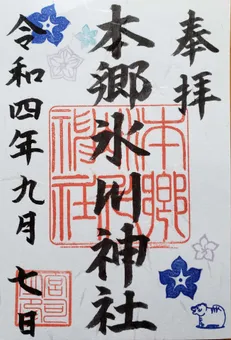 奉拝
本郷氷川神社
令和四年九月七日
本郷氷川神社